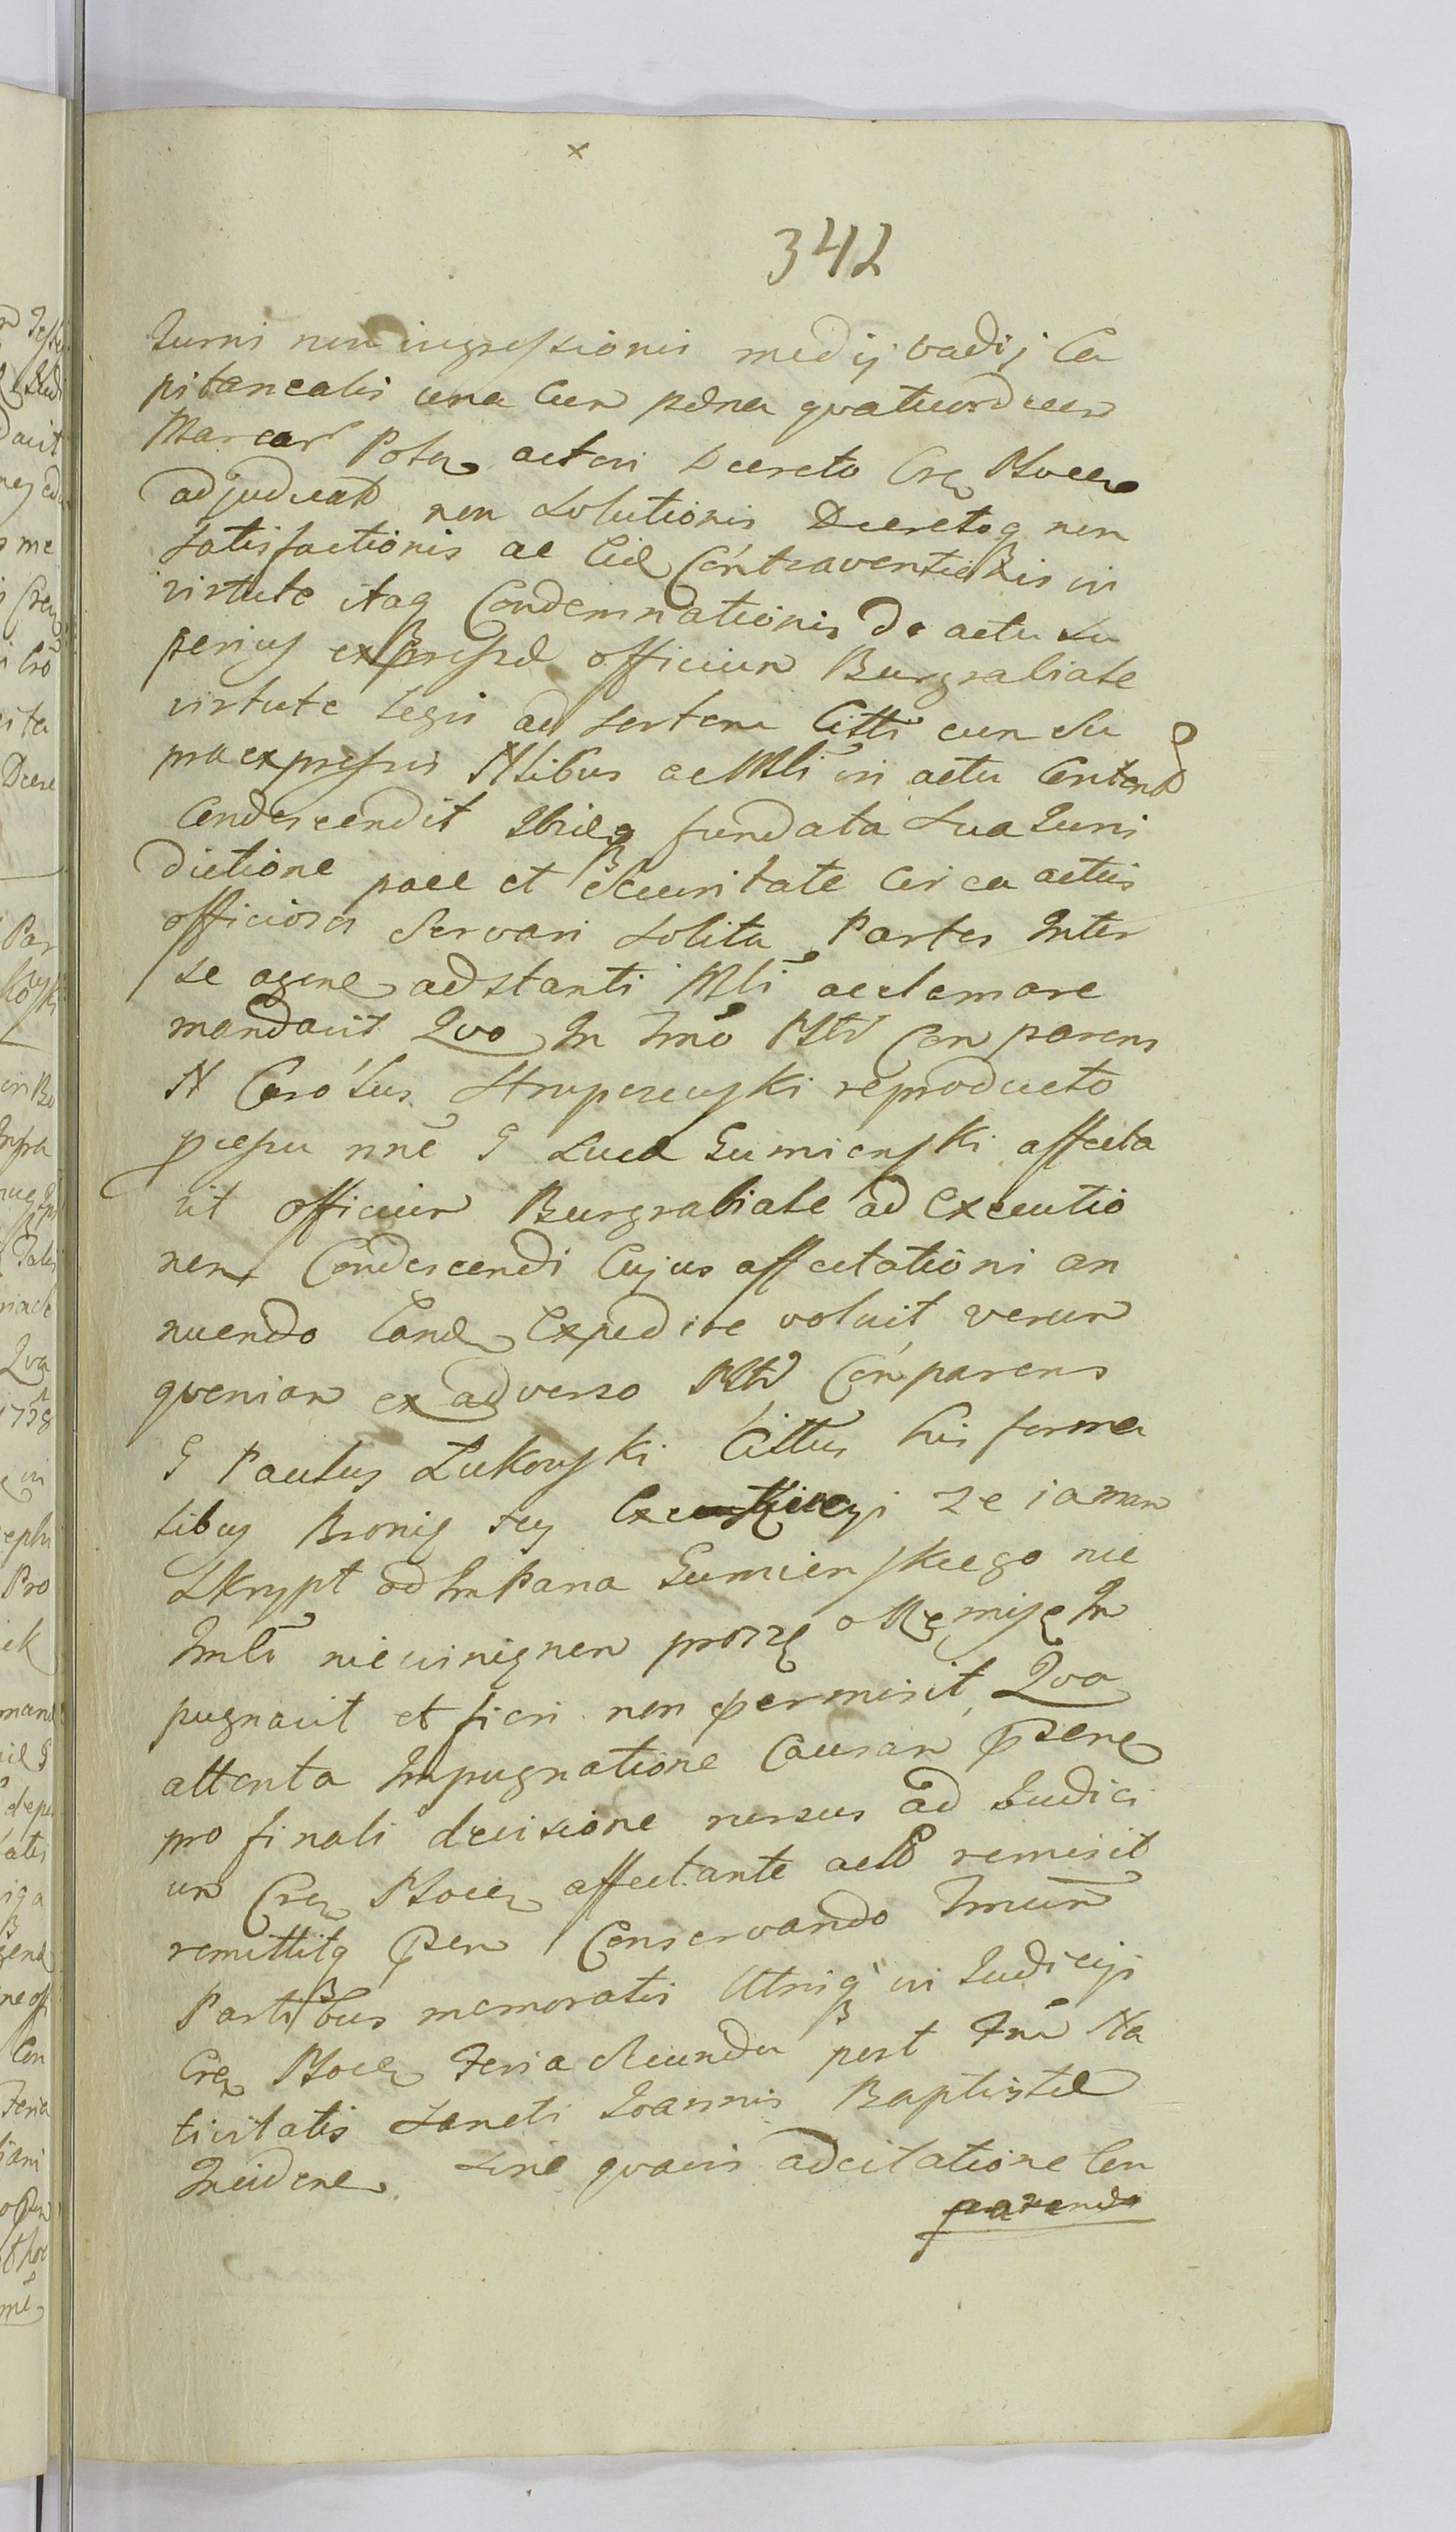 342
Turris non ingressionis medij vadij Ca
pitanealis una cum pæna quatuordecim
Marcar Polm actori Decreto Crem Ploceñ
adjudicat non Solutionis Decretoq non
satisfactionis ac Eid Contraventionis in
virtute itaq Condemnationis de actu su
perius expressæ officium Burgrabiale
virtute legis ad sortem Citti cum su
praexpressis Nlibus ac Mlī in actu Content
Condescendit Ibiq fundata sua Juris
dictione pace et securitate circa actus
officiosos servari solita Partes Inter
se agere adstanti Mlī acclamare
mandavit Quo In Tmō Pltr Comparens
N Carolus Strupczewski reproducto
pcessu nnē G Luca Gumienski affecta
vit officium Burgrabiale ad Executio
nem Condescendi Cujus affectationi an
nuendo Eand Expedire voluit verum
quoniam ex adverso Pltr Comparens
G Paulus Zukowski Cittus his forma
libus Bronię sey Execucyi ze ia mam
Skrypt od Jm Pana Gumienskiego nie
Jmści niewinignem proszę o Remisę Im
pugnavit et fieri non permisit Quo
attenta Impugnatione Causam pñtem
pro finali decisione rursus ad Judici
um Crem Plocen affectante act remisit
remittitq pñ Conservando Tmum
Partibus memoratis Utriq in Judicijs
Crem Plocen Feria secunda post Fm Na
tivitatis Sancti Joannis Baptistæ
Inciden sine quavis adcitatione Com
parendi